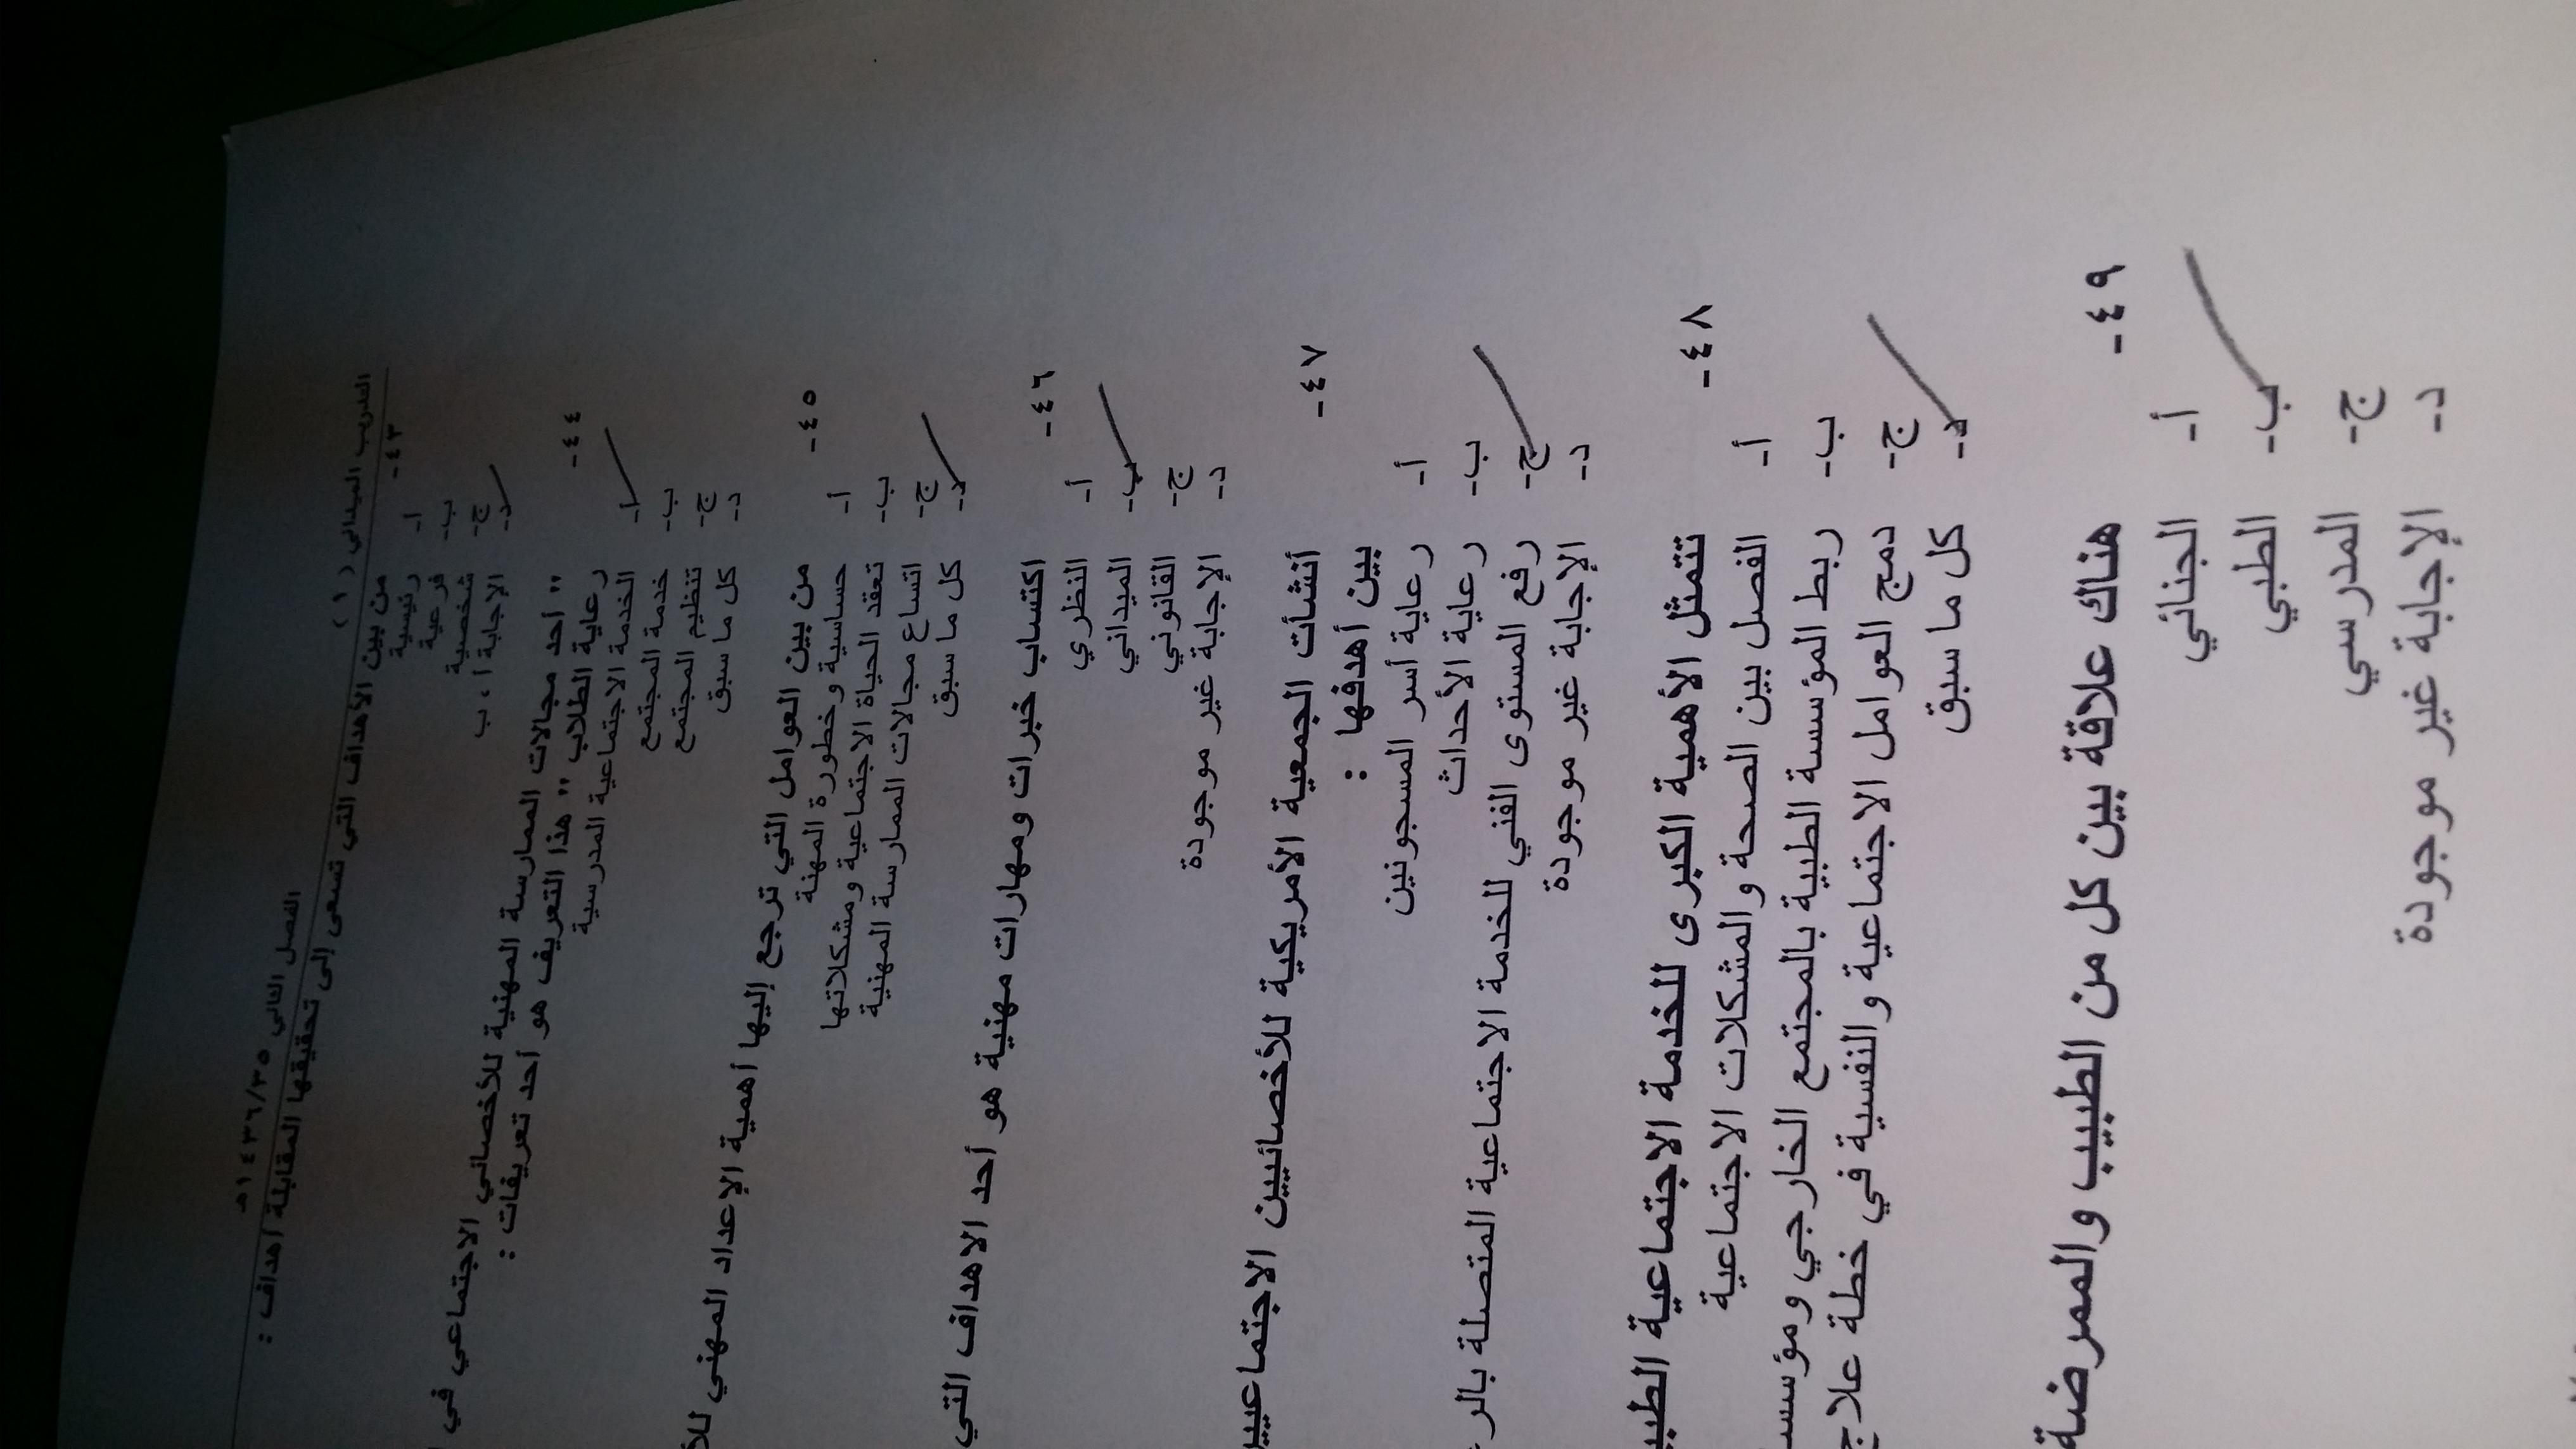 التدريب الميداني ( ١ ) الفصل الثاني ١٤٣٦/٣٥هـ
٤٣- من بين الأهداف التي تسعى إلى تحقيقها المقابلة أهداف :
أ- رئيسية
ب- فرعية
ج- شخصية
د- الإجابة أ ، ب
٤٤- ,, أحد مجالات الممارسة المهنية للأخصائي الاجتماعي في
رعاية الطلاب ,, هذا التعريف هو أحد تعريفات :
أ- الخدمة الاجتماعية المدرسية
ب- خدمة المجتمع
ج- تنظيم المجتمع
د- كل ما سبق
٤٥- من بين العوامل التي ترجع إليها أهمية الإعداد المهني
أ- حساسية وخطورة المهنة
ب- تعقد الحياة الاجتماعية ومشكلاتها
ج- اتساع مجالات الممارسة المهنية
د- كل ما سبق
٤٦- اكتساب خبرات ومهارات مهنية هو أحد الاهداف التي
أ- النظري
ب- الميداني
ج- القانوني
د- الإجابة غير موجودة
٤٧- أنشأت الجمعية الأمريكية للأخصائيين الاجتماعيين
بين أهدفها :
أ- رعاية أسر المسجونين
ب- رعاية الأحداث
ج- رفع المستوى الفني للخدمة الاجتماعية المتصلة
د- الإجابة غير موجودة
٤٨- تتمثل الأهمية الكبرى للخدمة الاجتماعية
أ- الفصل بين الصحة والمشكلات الاجتماعية
ب- ربط المؤسسة الطبية بالمجتمع الخارجي
ج- دمج العوامل الاجتماعية والنفسية في خطة
د- كل ما سبق
٤٩- هناك علاقة بين كل من الطبيب والممرضة
أ- الجنائي
ب- الطبي
ج- المدرسي
د- الإجابة غير موجودة